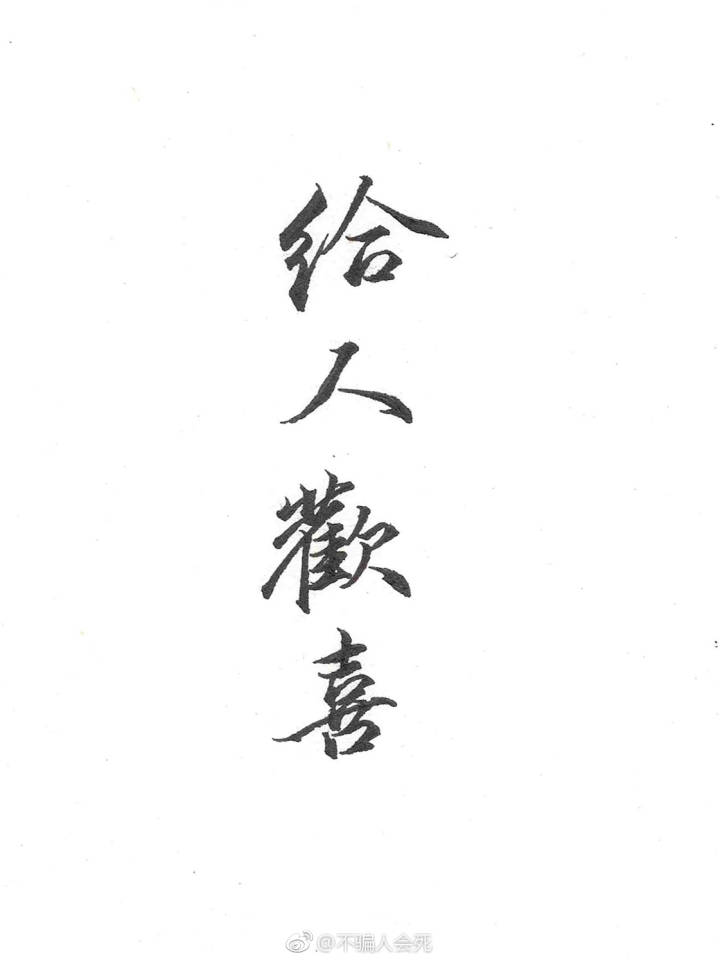 给人歡喜
@不骗人会死